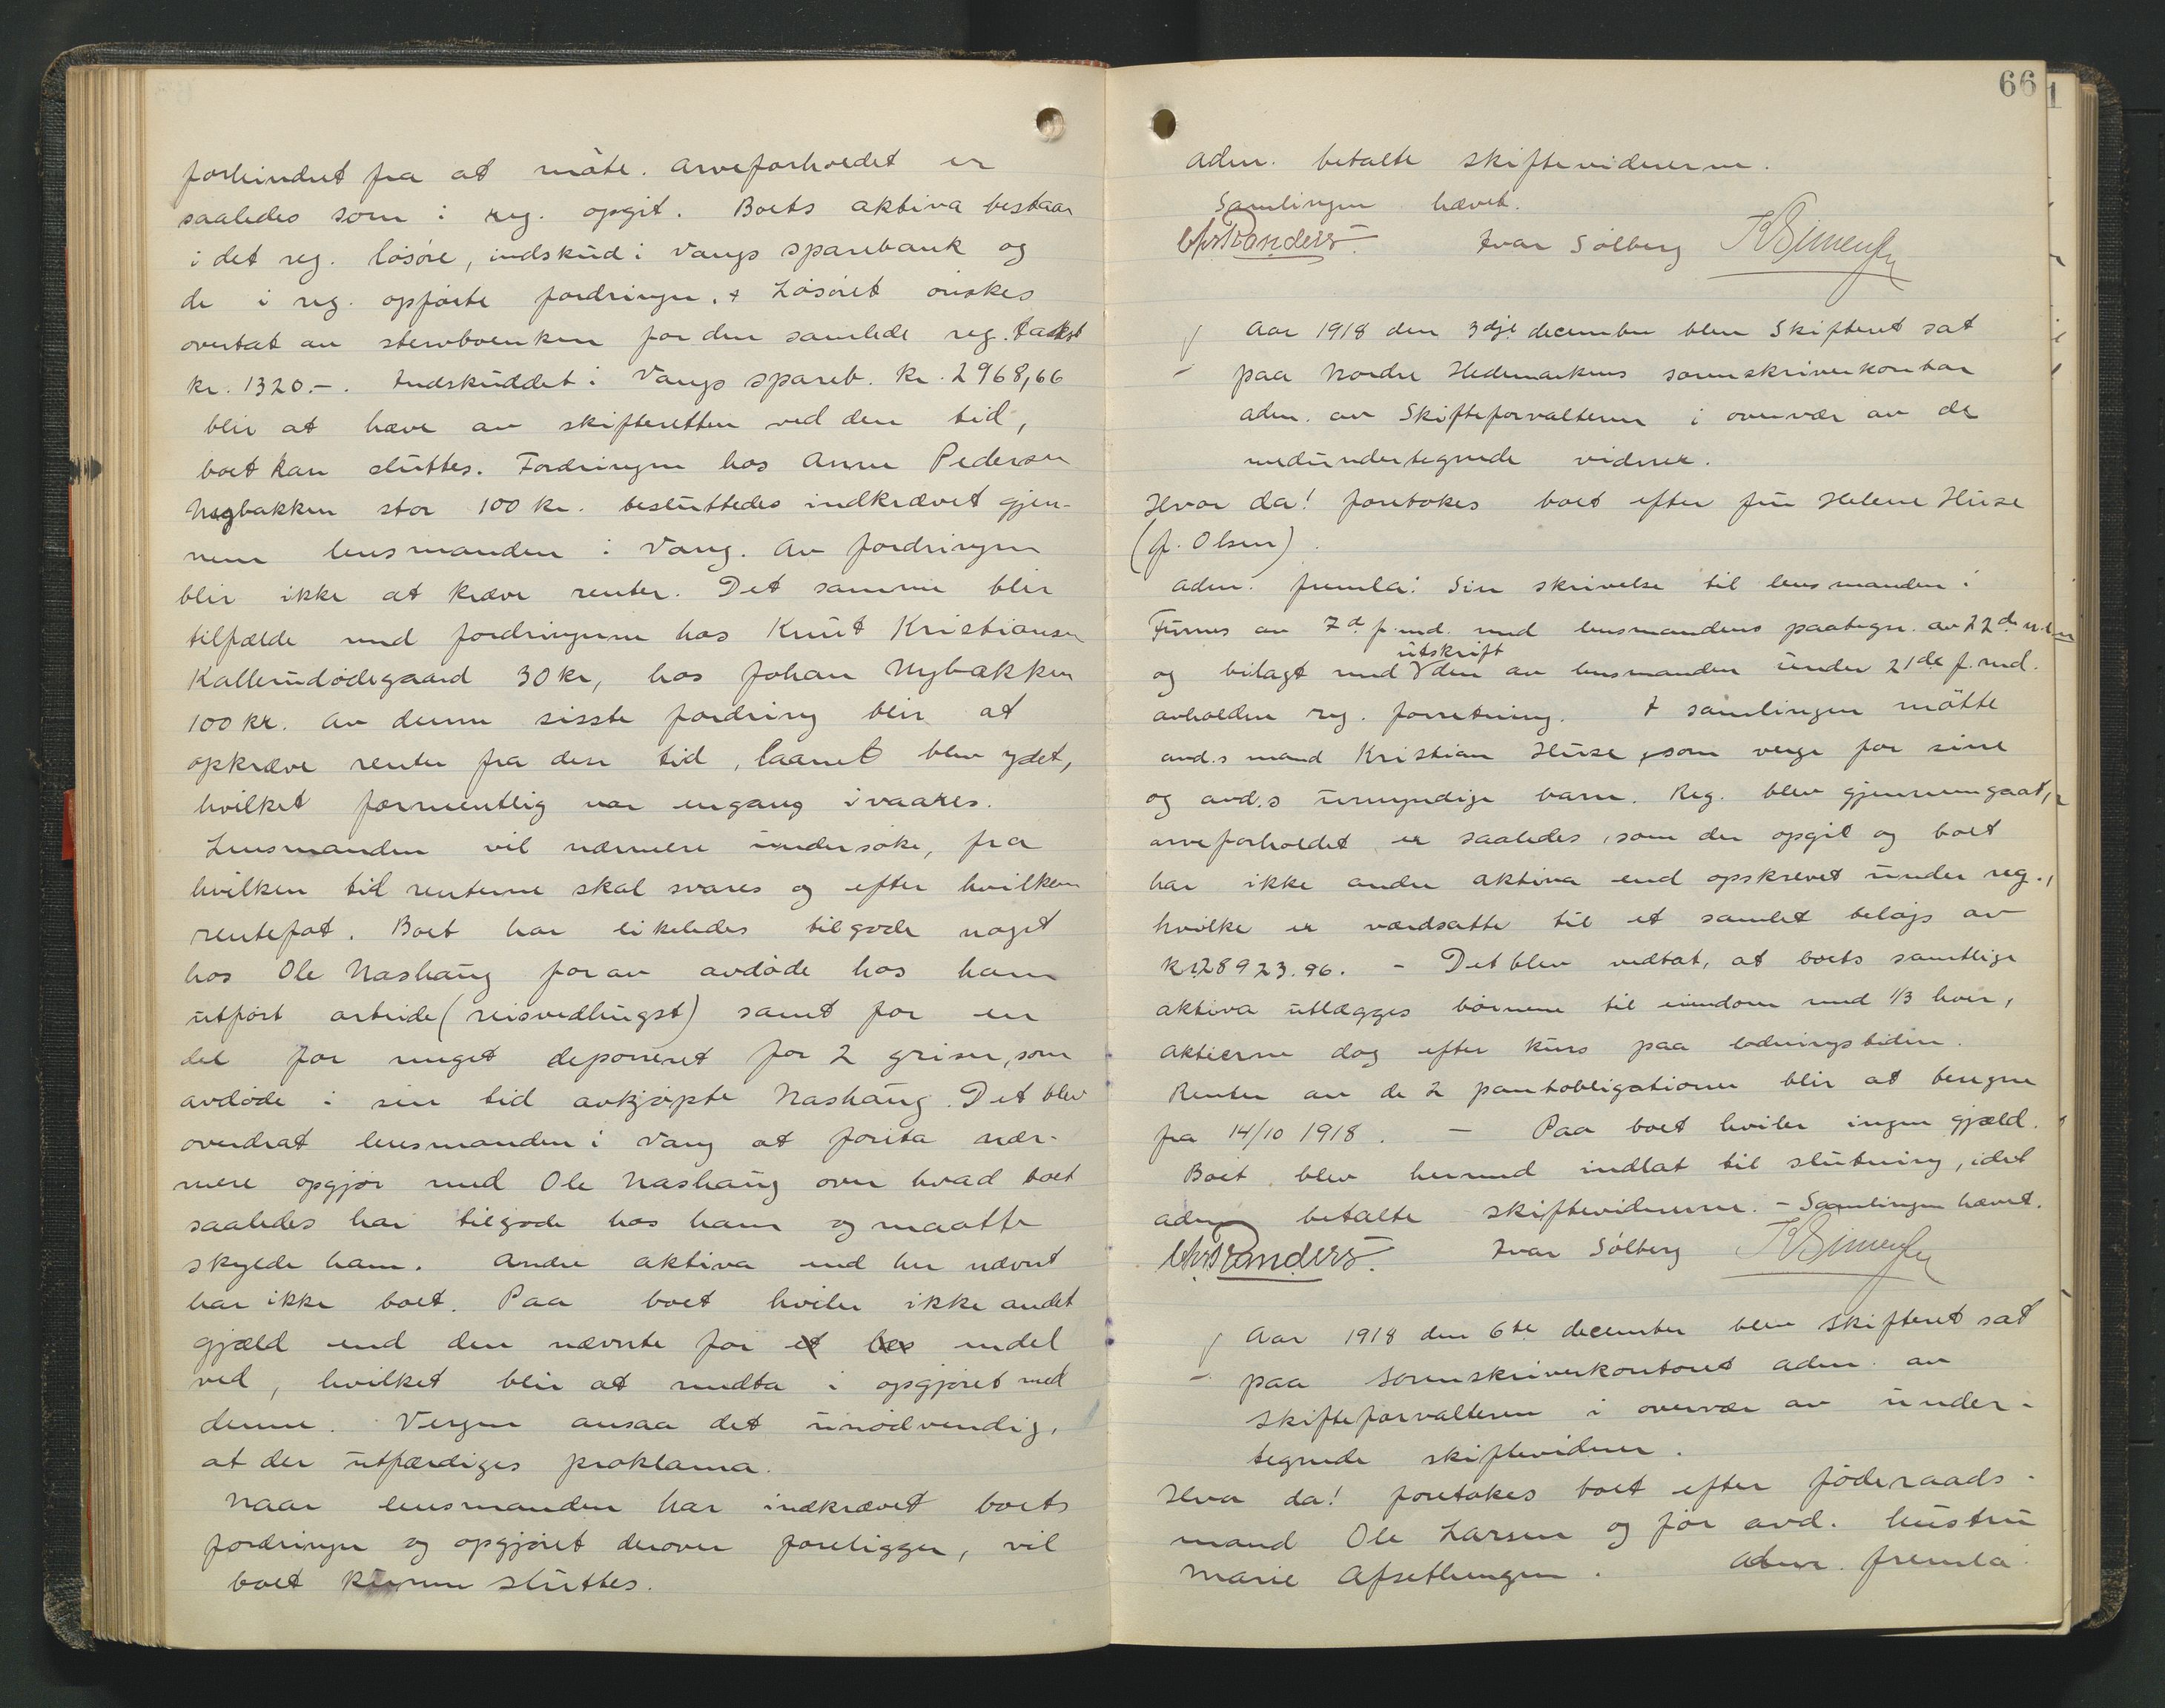 forhindret fra at møte. Arveforholdet er
saaledes som i reg. opgit. Boets aktiva bestaar
i det reg. løsøre, indskud i Vangs sparebank og
de i reg. opførte fordringer. + Løsøret ønskes
overtat av stervboenken for den samlede reg. takst
kr. 1320.-. Indskuddet i Vangs spareb. kr. 2968,66
blir at hæve av skifteretten ved den tid,
boet kan sluttes. Fordringen hos Anne Pedersen
Nybakken stor 100 kr. besluttedes indkrævet gjen-
nem lensmanden i Vang. Av fordringen
blir ikke at kræve renter. Det samme blir
tilfælde med fordringerne hos Knut Kristiansen
Kallerudødegaard 30 kr, hos Johan Nybakken
100 kr. Av denne sisste fordring blir at
opkræve renter fra den tid, laanet blev ydet,
hvilket formentlig var engang ivaares.
Lensmanden vil nærmere undersøke, fra
hvilken tid renterne skal svares og efter hvilken
rentefot. Boet har likeledes tilgode noget
hos Ole Nashaug for av avdøde hos ham
utført arbeide (reisvedhugst) samt for en
del for meget deponeret for 2 griser, som
avdøde i sin tid avkjøpte Nashaug. Det blev
overdrat lensmanden i Vang at foreta nær-
mere opgjør med Ole Nashaug over hvad boet
saaledes har tilgode hos ham og maatte
skylde ham. Andre aktiva end her nævnt
har ikke boet. Paa boet hviler ikke andet
gjæld end den nævnte for et læs endel
ved, hvilket blir at medta i opgjøret med
denne. Vergen ansaa det unødvendig,
at der utfærdiges proklama.
Naar lensmanden har indkrævet boets
fordringer og opgjøret derover foreligger, vil
boet kunne sluttes.
66
Adm. betalte skiftevidnerne.
Samlingen hævet.
Chr Randers Ivar Sølberg K Simensen
Aar 1918 den 3dje december blev Skifteret sat
paa Nordre Hedemarkens sorenskriverkontor
adm. av Skifteforvalteren i overvær av de
medundertegnede vidner.
Hvor da! foretokes boet efter fru Helene Huse
(f. Olsen).
Adm. fremla: Sin skrivelse til lensmanden i
Furnes av 7de f. md. med lensmandens paategn. av 22de
utskrift
og bilagt med den av lensmanden under 21de f. md.
avholden reg. forretning. I samlingen møtte
avd.s mand Kristian Huse, som verge for sine
og avd.s umyndige barn. Reg. blev gjennemgaat,
arveforholdet er saaledes, som der opgit og boet
har ikke andre aktiva end opskrevet under reg.,
hvilke er værdsatte til et samlet beløp av
kr. 28923.96. - Det blev vedtat, at boets samtlige
aktiva utlægges børnene til eiendom med 1/3 hver,
aktierne dog efter kurs paa lodningstiden.
Renter av de 2 pantobligationer blir at beregne
fra 14/10 1918. - Paa boet hviler ingen gjæld.
Boet blev hermed indlat til slutning, idet
adm. betalte skiftevidnerne. - Samlingen hævet.
Chr Randers. Ivar Sølberg K Simensen
Aar 1918 den 6te december blev Skifteret sat
paa Sorenskriverkontoret adm. av
Skifteforvalteren i overvær av under-
tegnede skiftevidner.
Hvor da! foretokes boet efter føderaads-
mand Ole Larsen og før avd. hustru
Marie Afsethengen. Adm. fremla: